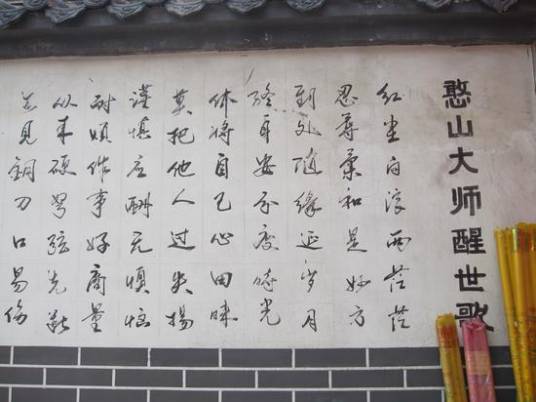 憨山大师醒世歌
红尘白浪两茫茫
忍辱柔和是妙方
到处随缘延岁月
终身安分度时光
休将自己心田昧
莫把他人过失扬
谨慎应酬无懊恼
耐烦作事好商量
从来硬弩弦先断
每见钢刀口易伤